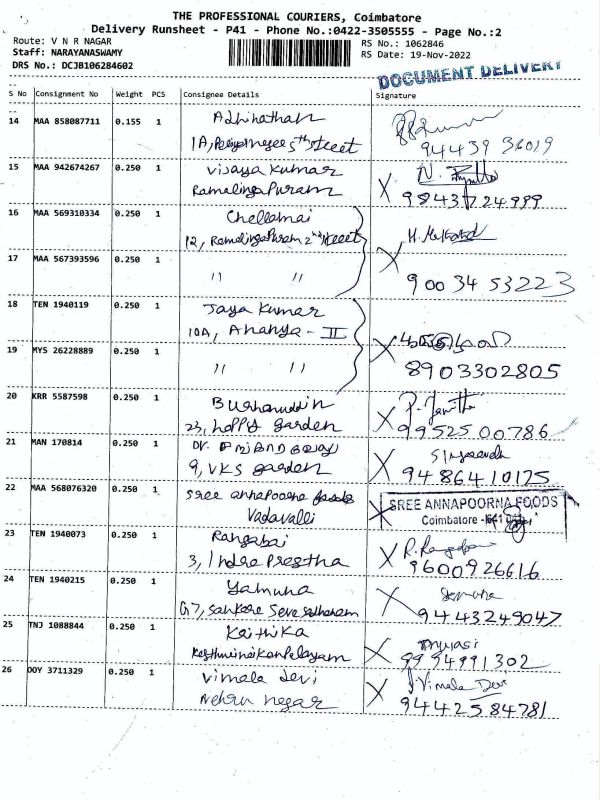 THE PROFESSIONAL COURIERS, Coimbatore
Delivery Runsheet - P41 - Phone No.:0422-3505555 - Page No.:2
Route: V N R NAGAR
RS No.: 1062846
Staff: NARAYANASWAMY
RS Date: 19-Nov-2022
DRS No.: DCJB106284602
DOCUMENT DELIVERY
S No Consignment No Weight PCS Consignee Details Signature
14 MAA 858087711 0.155 1
5th street
94439 36019
15 MAA 942674267 0.250 1 Vijaya Kumar
Ramalinga Puram
98437 24999
16 MAA 569310334 0.250 1 Chellamai
12, Ramalinga Puram 2nd street
17 MAA 567393596 0.250 1 " "
90034 53223
18 TEN 1940119 0.250 1 Jaya Kumar
10A, Ananya - II
19 MYS 26228889 0.250 1 " "
8903302805
20 KRR 5587598 0.250 1 Burhanuddin
23, happy garden
99525 00786
21 MAN 170814 0.250 1 Dr.
9, VKS garden
94864 10125
22 MAA 568076320 0.250 1 Sree annapoorna foods
Vadavalli
SREE ANNAPOORNA FOODS
Coimbatore - 641
23 TEN 1940073 0.250 1 Rangabai
3, Indra Prestha
9600926616
24 TEN 1940215 0.250 1 Yamuna
G7,
94432 49047
25 TNJ 1088844 0.250 1 Kaithika
99949 91302
26 OOY 3711329 0.250 1 Vimala Devi
Nehru nagar
J. Vimala Devi
94425 84781